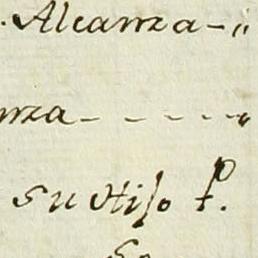 . Alcanza - "
nza - - - - - "
su Hijo P.